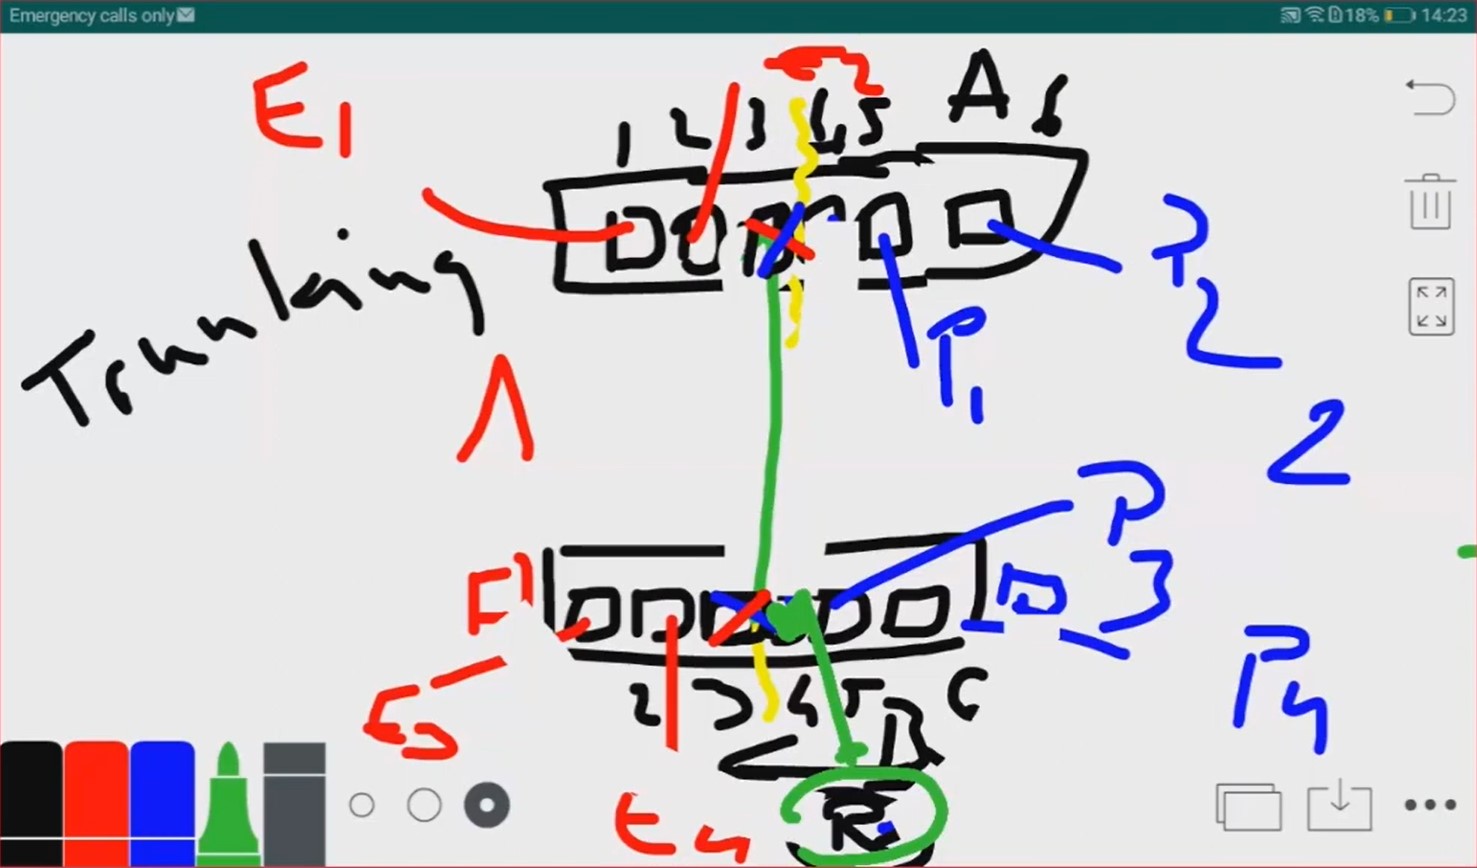 Emergency calls only 18% 14:23
E1
2
A
1 2 3 4 5 6
Trunking
P2
P1
2
P3
E3
2 3 4 5 6
B
P4
E4
R